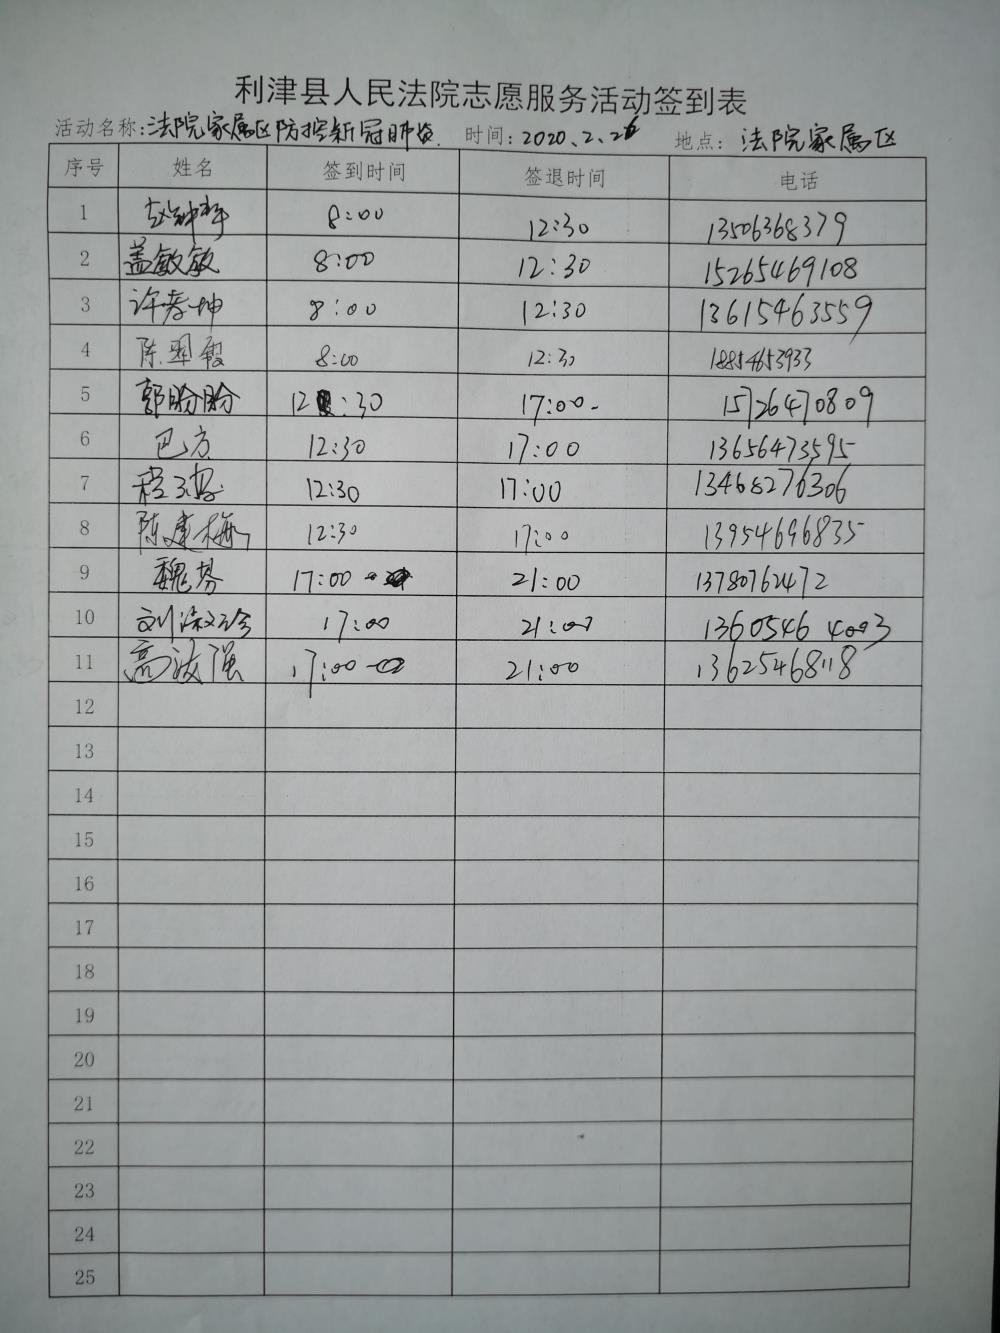 利津县人民法院志愿服务活动签到表
活动名称：法院家属区防控新冠肺炎 时间：2020.2.26 地点：法院家属区
序号 姓名 签到时间 签退时间 电话
1 8:00 12:30 13506368379
2 盖敏敏 8:00 12:30 15265469108
3 许孝坤 8:00 12:30 13615463559
4 陈翠霞 8:00 12:30 18854653933
5 郭盼盼 12:30 17:00 15726470809
6 巴方 12:30 17:00 13656473595
7 12:30 17:00 13468276306
8 陈建梅 12:30 17:00 13954696835
9 魏芬 17:00 21:00 13780762472
10 刘淑玲 17:00 21:00 13605464003
11 高波强 17:00 21:00 13625468118
12
13
14
15
16
17
18
19
20
21
22
23
24
25